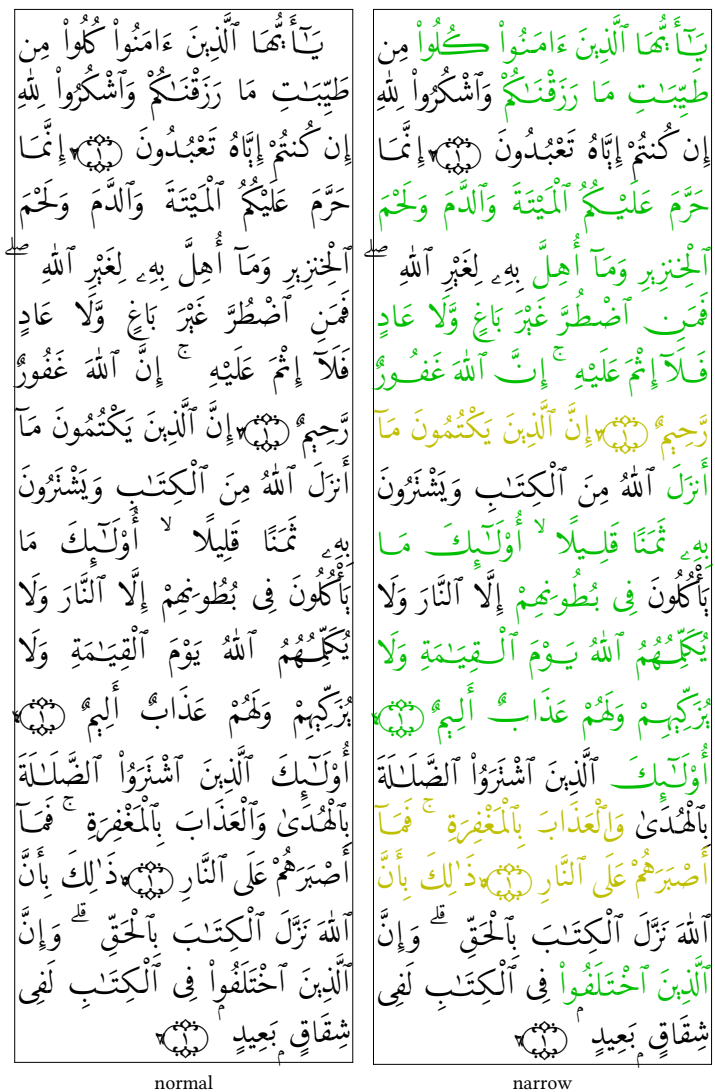 يَـٰٓأَيُّهَا ٱلَّذِينَ ءَامَنُوا۟ كُلُوا۟ مِن
طَيِّبَـٰتِ مَا رَزَقْنَـٰكُمْ وَٱشْكُرُوا۟ لِلَّهِ
إِن كُنتُمْ إِيَّاهُ تَعْبُدُونَ ۝١٧٢ إِنَّمَا
حَرَّمَ عَلَيْكُمُ ٱلْمَيْتَةَ وَٱلدَّمَ وَلَحْمَ
ٱلْخِنزِيرِ وَمَآ أُهِلَّ بِهِۦ لِغَيْرِ ٱللَّهِ ۖ
فَمَنِ ٱضْطُرَّ غَيْرَ بَاغٍ وَلَا عَادٍ
فَلَآ إِثْمَ عَلَيْهِ ۚ إِنَّ ٱللَّهَ غَفُورٌ
رَّحِيمٌ ۝١٧٣ إِنَّ ٱلَّذِينَ يَكْتُمُونَ مَآ
أَنزَلَ ٱللَّهُ مِنَ ٱلْكِتَـٰبِ وَيَشْتَرُونَ
بِهِۦ ثَمَنًا قَلِيلًا ۙ أُو۟لَـٰٓئِكَ مَا
يَأْكُلُونَ فِى بُطُونِهِمْ إِلَّا ٱلنَّارَ وَلَا
يُكَلِّمُهُمُ ٱللَّهُ يَوْمَ ٱلْقِيَـٰمَةِ وَلَا
يُزَكِّيهِمْ وَلَهُمْ عَذَابٌ أَلِيمٌ ۝١٧٤
أُو۟لَـٰٓئِكَ ٱلَّذِينَ ٱشْتَرَوُا۟ ٱلضَّلَـٰلَةَ
بِٱلْهُدَىٰ وَٱلْعَذَابَ بِٱلْمَغْفِرَةِ ۚ فَمَآ
أَصْبَرَهُمْ عَلَى ٱلنَّارِ ۝١٧٥ ذَٰلِكَ بِأَنَّ
ٱللَّهَ نَزَّلَ ٱلْكِتَـٰبَ بِٱلْحَقِّ ۗ وَإِنَّ
ٱلَّذِينَ ٱخْتَلَفُوا۟ فِى ٱلْكِتَـٰبِ لَفِى
شِقَاقٍۭ بَعِيدٍۢ ۝١٧٦
normal
يَـٰٓأَيُّهَا ٱلَّذِينَ ءَامَنُوا۟ كُلُوا۟ مِن
طَيِّبَـٰتِ مَا رَزَقْنَـٰكُمْ وَٱشْكُرُوا۟ لِلَّهِ
إِن كُنتُمْ إِيَّاهُ تَعْبُدُونَ ۝١٧٢ إِنَّمَا
حَرَّمَ عَلَيْكُمُ ٱلْمَيْتَةَ وَٱلدَّمَ وَلَحْمَ
ٱلْخِنزِيرِ وَمَآ أُهِلَّ بِهِۦ لِغَيْرِ ٱللَّهِ ۖ
فَمَنِ ٱضْطُرَّ غَيْرَ بَاغٍ وَلَا عَادٍ
فَلَآ إِثْمَ عَلَيْهِ ۚ إِنَّ ٱللَّهَ غَفُورٌ
رَّحِيمٌ ۝١٧٣ إِنَّ ٱلَّذِينَ يَكْتُمُونَ مَآ
أَنزَلَ ٱللَّهُ مِنَ ٱلْكِتَـٰبِ وَيَشْتَرُونَ
بِهِۦ ثَمَنًا قَلِيلًا ۙ أُو۟لَـٰٓئِكَ مَا
يَأْكُلُونَ فِى بُطُونِهِمْ إِلَّا ٱلنَّارَ وَلَا
يُكَلِّمُهُمُ ٱللَّهُ يَوْمَ ٱلْقِيَـٰمَةِ وَلَا
يُزَكِّيهِمْ وَلَهُمْ عَذَابٌ أَلِيمٌ ۝١٧٤
أُو۟لَـٰٓئِكَ ٱلَّذِينَ ٱشْتَرَوُا۟ ٱلضَّلَـٰلَةَ
بِٱلْهُدَىٰ وَٱلْعَذَابَ بِٱلْمَغْفِرَةِ ۚ فَمَآ
أَصْبَرَهُمْ عَلَى ٱلنَّارِ ۝١٧٥ ذَٰلِكَ بِأَنَّ
ٱللَّهَ نَزَّلَ ٱلْكِتَـٰبَ بِٱلْحَقِّ ۗ وَإِنَّ
ٱلَّذِينَ ٱخْتَلَفُوا۟ فِى ٱلْكِتَـٰبِ لَفِى
شِقَاقٍۭ بَعِيدٍۢ ۝١٧٦
narrow